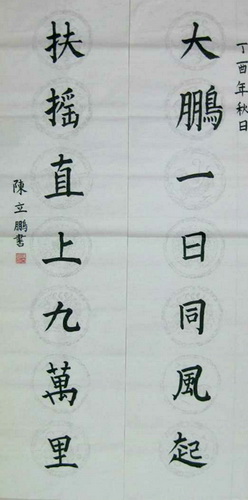 丁酉年秋日
大鵬一日同風起
扶摇直上九萬里
陳立鵬書